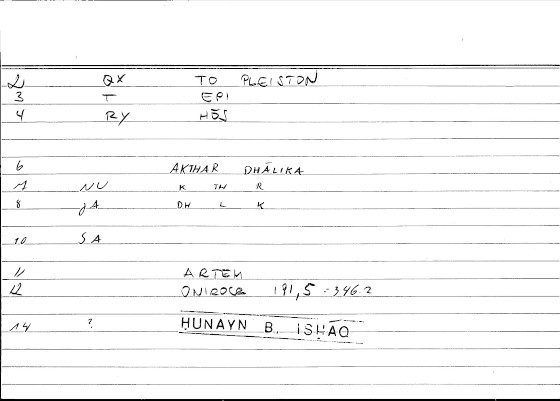 2 QX TO PLEISTON
3 T EPI
4 RY HŌS
6 AKTHAR DHĀLIKA
7 NU K TH R
8 JA DH L K
10 SA
11 ARTEM
12 ONIROCR 191,5 = 346.2
14 ? ḤUNAYN B. ISḤĀQ